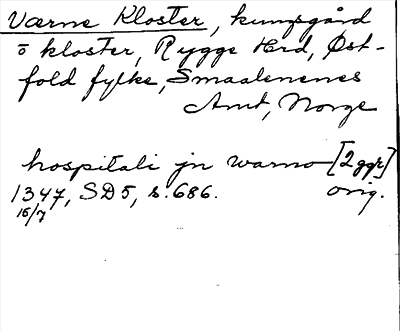 Værne Kloster, kungsgård
o kloster, Rygge Hrd, Øst-
fold fylke, Smaalenenes
Amt, Norge
hospitali jn warno [2 ggr]
1347, SD5, s. 686. orig.
15/7